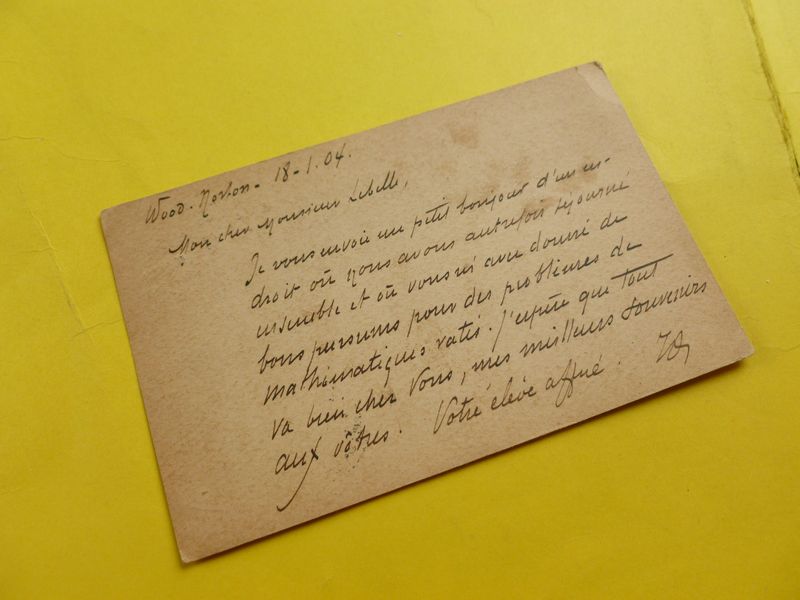 Wood-Norton - 18-1.04.
Mon cher Monsieur Lebelle,
Je vous envoie un petit bonjour d'un en-
droit où nous avons autrefois séjourné
ensemble et où vous m'avez donné de
bons pensums pour des problèmes de
mathématiques ratés. J'espère que tout
va bien chez vous, mes meilleurs souvenirs
aux vôtres. Votre élève affné.